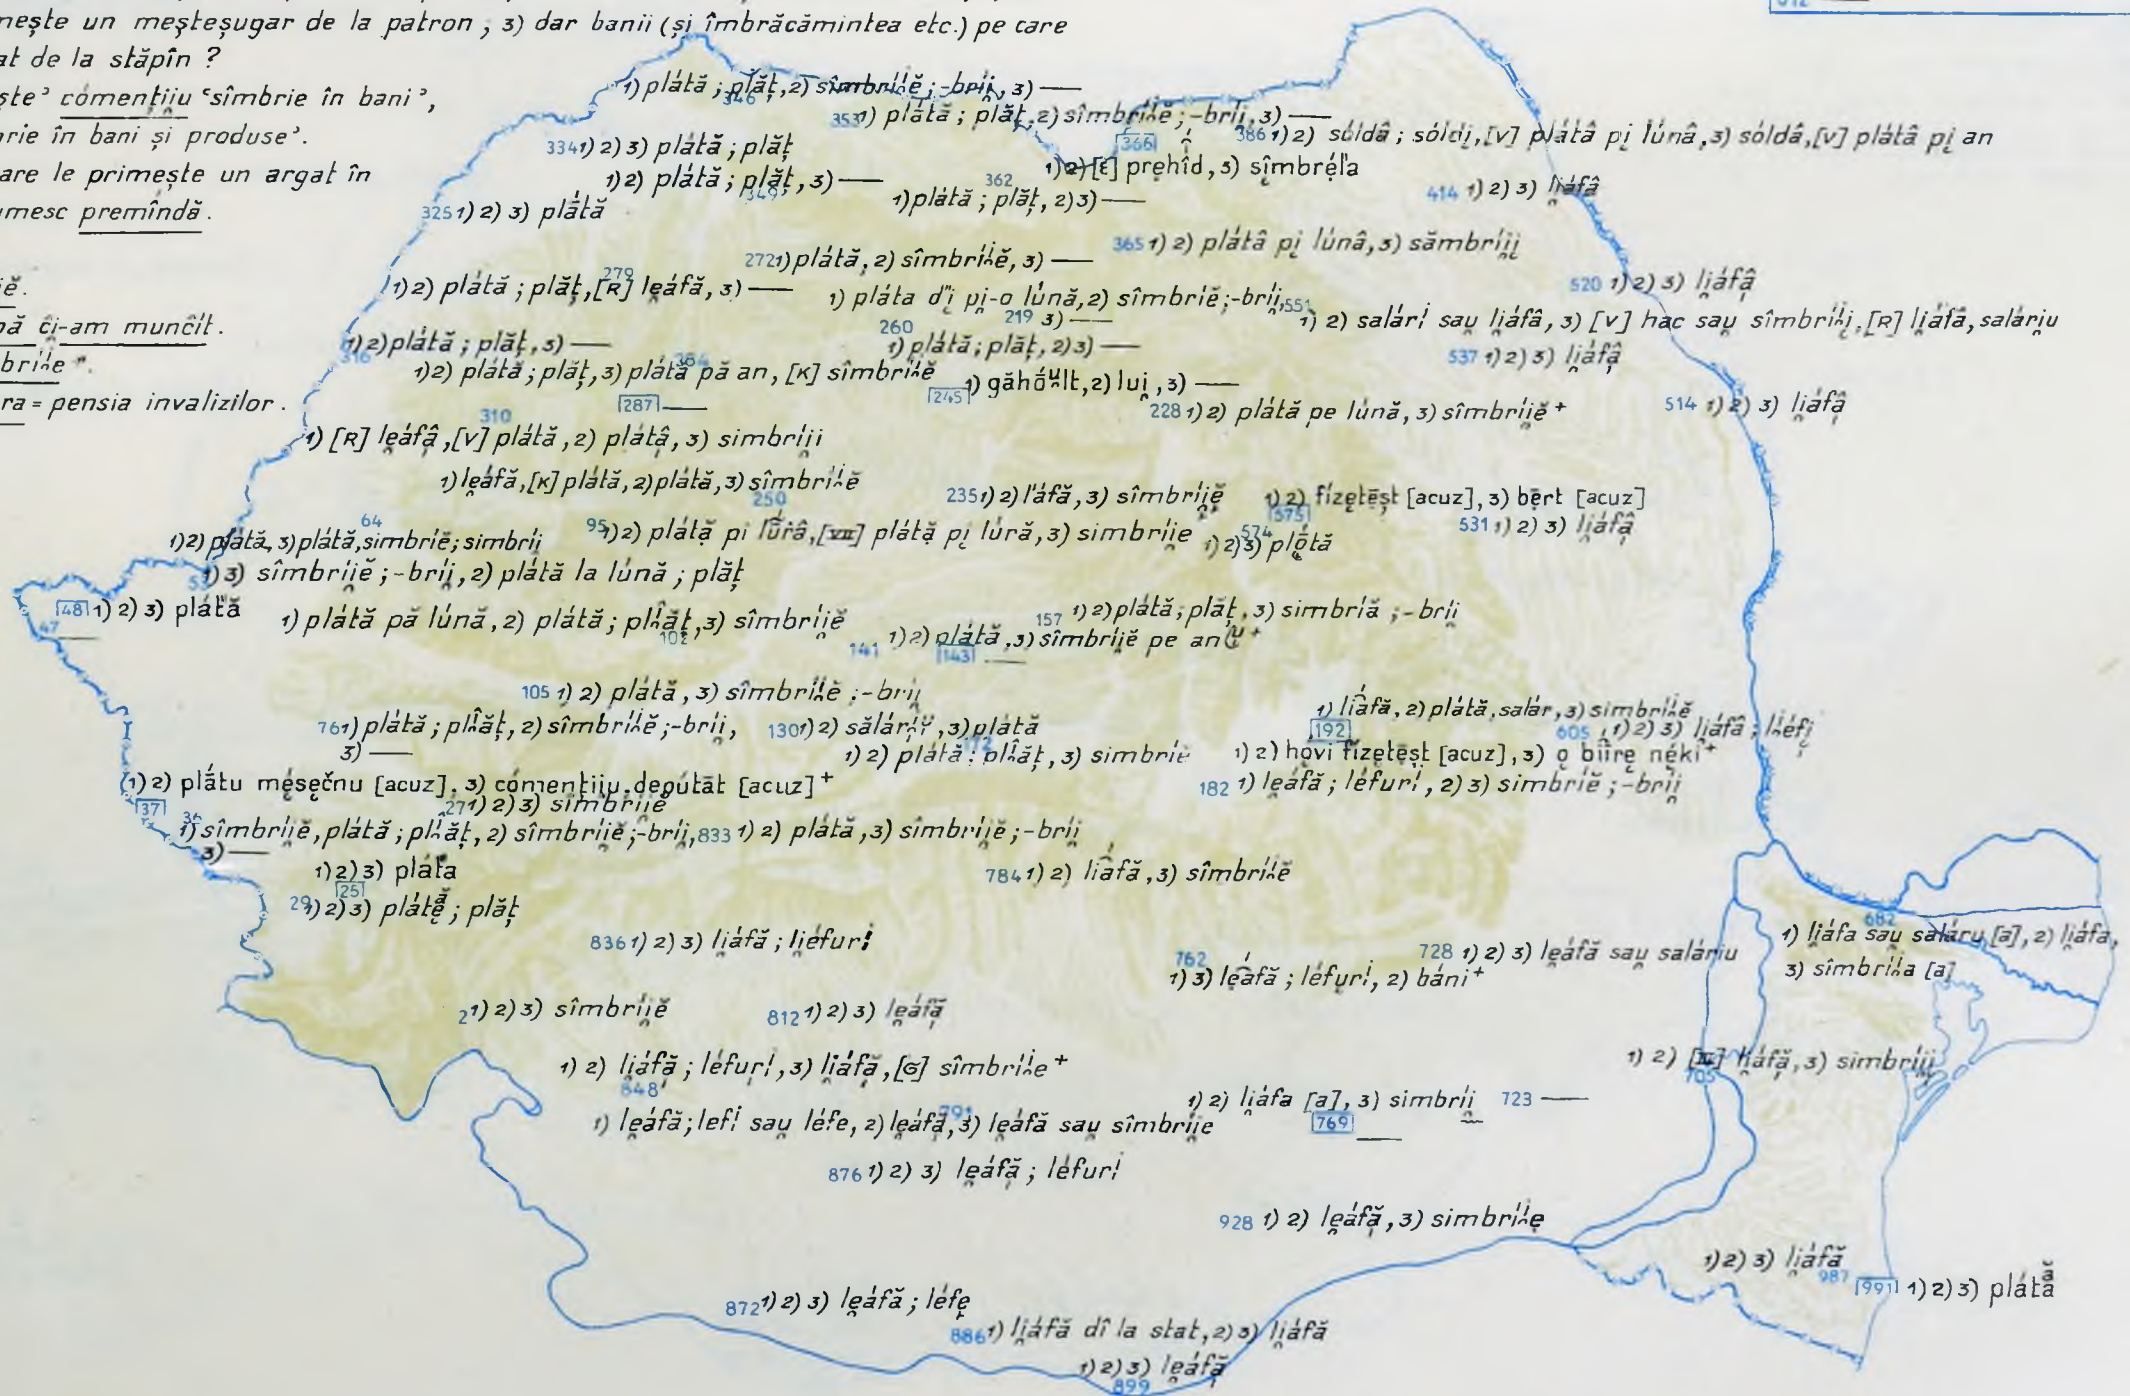 nește un meșteșugar de la patron ; 3) dar banii (și îmbrăcămintea etc.) pe care
at de la stăpîn ?
ște’ comențiiu ‘simbrie în bani’,
rie în bani și produse’.
are le primește un argat în
umesc premîndă.
ĉi-am muncít.
ra = pensia invalizilor.
346 1) plátă ; plăț, 2) sîmbríi̯ĕ ; -bríi̯, 3) —
353 1) plátă ; plăț, 2) sîmbríi̯ĕ ; -bríi̯, 3) —
334 1) 2) 3) plátă ; plăț
366 1) 2) [ɛ] prẹhîd, 3) sîmbrẹ́l'a
386 1) 2) sóldâ ; sóldi, [V] plátâ pi̯ lúnâ, 3) sóldâ, [V] plátâ pi̯ an
349 1) 2) plátă ; plăț, 3) —
362 1) plátă ; plăț, 2) 3) —
414 1) 2) 3) li̯áfâ
325 1) 2) 3) plátă
365 1) 2) plátâ pi̯ lúnâ, 3) sămbríi̯i
272 1) plátă, 2) sîmbríi̯ĕ, 3) —
279 1) 2) plátă ; plăț, [R] lẹáfă, 3) —
520 1) 2) 3) li̯áfâ
219 1) pláta d'i pi-o lúnă, 2) sîmbríĕ ; -bríi̯,
3) —
551 1) 2) salári sau̯ li̯áfâ, 3) [V] hac sau sîmbríi̯i, [R] li̯áfă, saláriu
316 1) 2) plátă ; plăț, 3) —
260 1) plátă ; plăț, 2) 3) —
537 1) 2) 3) li̯áfâ
284 1) 2) plátă ; plăț, 3) plátă pă an, [K] sîmbríi̯ĕ
245 1) găhóu̯lt, 2) lui̯, 3) —
287 —
228 1) 2) plátă pe lúnă, 3) sîmbríi̯ĕ +
514 1) 2) 3) li̯áfâ
310 1) [R] lẹáfâ, [V] plátă, 2) plátâ, 3) simbríi̯i
250 1) lẹáfă, [K] plátă, 2) plátă, 3) sîmbríi̯ĕ
235 1) 2) l'áfă, 3) sîmbríi̯ĕ
575 1) 2) fízẹtēșt [acuz], 3) bērt [acuz]
531 1) 2) 3) li̯áfâ
64 1) 2) plátă, 3) plátă, simbríĕ ; simbríi
95 1) 2) plátă pi lúrâ, [VII] plátă pi̯ lúră, 3) simbríi̯e
574 1) 2) 3) plọ́tă
53 1) 3) sîmbríi̯ĕ ; -bríi̯, 2) plátă la lúnă ; plăț
48 1) 2) 3) plátă
47 —
102 1) plátă pă lúnă, 2) plátă ; pli̯ăț, 3) sîmbríi̯ĕ
157 1) 2) plátă ; plăț, 3) simbríă ; -bríi
141 1) 2) plátă, 3) sîmbríi̯ĕ pe an +
143 —
105 1) 2) plátă, 3) sîmbríi̯ĕ ; -bríi̯
192 1) li̯áfă, 2) plátă, salár, 3) simbríi̯ĕ
76 1) plátă ; pli̯ăț, 2) sîmbríi̯ĕ ; -bríi̯,
3) —
130 1) 2) sălári̯u, 3) plátă
605 1) 2) 3) li̯áfâ ; li̯éfi̯
172 1) 2) plátă ; pli̯ăț, 3) simbríe
1) 2) họ́vi fízẹtēșt [acuz], 3) ọ bíirẹ nẹ́ki +
37 1) 2) plátu mésẹčnu [acuz], 3) comențíi̯u, deputát [acuz] +
182 1) lẹáfă ; léfuri, 2) 3) simbríĕ ; -bríi̯
27 1) 2) 3) simbríi̯ĕ
36 1) sîmbríi̯ĕ, plátă ; pli̯ăț, 2) sîmbríi̯ĕ ; -bríi̯,
3) —
833 1) 2) plátă, 3) sîmbríi̯ĕ ; -bríi̯
25 1) 2) 3) pláta
784 1) 2) li̯áfă, 3) sîmbríi̯ĕ
29 1) 2) 3) plátẹ̆ ; plăț
836 1) 2) 3) li̯áfă ; li̯éfuri
762 1) 3) lẹáfă ; léfuri, 2) báni +
728 1) 2) 3) lẹáfă sau̯ saláriu
682 1) li̯áfa sau̯ saláru [a], 2) li̯áfa,
3) sîmbríi̯a [a]
2 1) 2) 3) sîmbríi̯ĕ
812 1) 2) 3) lẹáfă
848 1) 2) li̯áfă ; léfuri, 3) li̯áfă, [G] sîmbríi̯e +
705 1) 2) li̯áfă, 3) simbríi̯i
791 1) lẹáfă ; lefi sau̯ léfe, 2) lẹáfă, 3) lẹáfă sau̯ sîmbríi̯e
769 1) 2) li̯áfa [a], 3) simbríi
723 —
876 1) 2) 3) lẹáfă ; léfuri
928 1) 2) lẹáfă, 3) simbríi̯e
987 1) 2) 3) li̯áfă
991 1) 2) 3) plátă
872 1) 2) 3) lẹáfă ; léfẹ
886 1) li̯áfă dî la stat, 2) 3) li̯áfă
899 1) 2) 3) lẹáfă